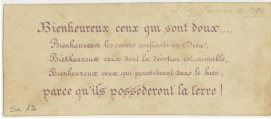 Bienheureux ceux qui sont doux....
Bienheureux les cœurs confiants en Dieu,
Bienheureux ceux dont la dévotion est aimable,
Bienheureux ceux qui persévèrent dans le bien,
parce qu'ils posséderont la terre !